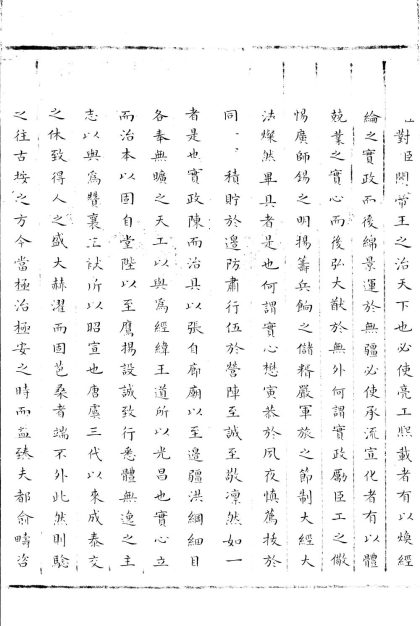 對臣聞帝王之治天下也必使亮工熙載者有以煥經
綸之實政而後綿景運於無疆必使承流宣化者有以體
兢業之實心而後弘大猷於無外何謂實政勵臣工之儆
惕廣師錫之明揚籌兵餉之儲糈嚴軍旅之節制大經大
法燦然畢具者是也何謂實心懋寅恭於夙夜慎薦拔於
同積貯於邊防肅行伍於營陣至誠至敬凜然如一
者是也實政陳而治具以張自廊廟以至邊疆洪綱細目
各奉無曠之天工以與為經緯王道所以光昌也實心立
而治本以固自堂陛以至鷹揚設誠致行悉體無逸之主
志以與為贊襄所以昭宣也唐虞三代以來成泰交
之休致得人之盛大赫濯而固苞桑者端不外此然則驗
之往古按之方今當極治極安之時而益臻夫都俞疇咨